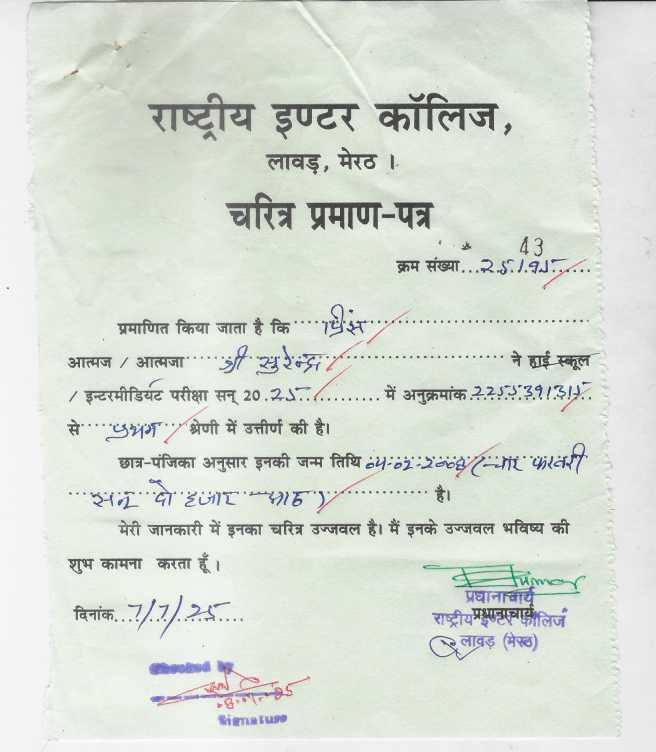 राष्ट्रीय इण्टर कॉलिज,
लावड़, मेरठ ।
चरित्र प्रमाण-पत्र
43
क्रम संख्या...25195......
प्रमाणित किया जाता है कि प्रिंस
आत्मज / आत्मजा श्री सुरेन्द्र ने हाई स्कूल
/ इन्टरमीडियट परीक्षा सन् 2025 में अनुक्रमांक 2255391315
से प्रथम श्रेणी में उत्तीर्ण की है।
छात्र-पंजिका अनुसार इनकी जन्म तिथि 04-02-2008 (चार फरवरी
सन् दो हजार आठ) है।
मेरी जानकारी में इनका चरित्र उज्जवल है। मैं इनके उज्जवल भविष्य की
शुभ कामना करता हूँ ।
दिनांक 7/7/25
प्रधानाचार्य
प्रधानाचार्य
राष्ट्रीय इण्टर कॉलिज
लावड़ (मेरठ)
Checked by
Signature